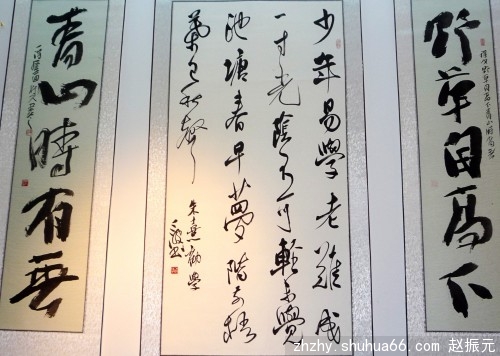 野草自高下
少年易學老難成
一寸光陰不可輕未覺
池塘春草夢階前梧
葉已秋聲
朱熹勸學
青山時有無
zhzhy.shuhua66.com 赵振元